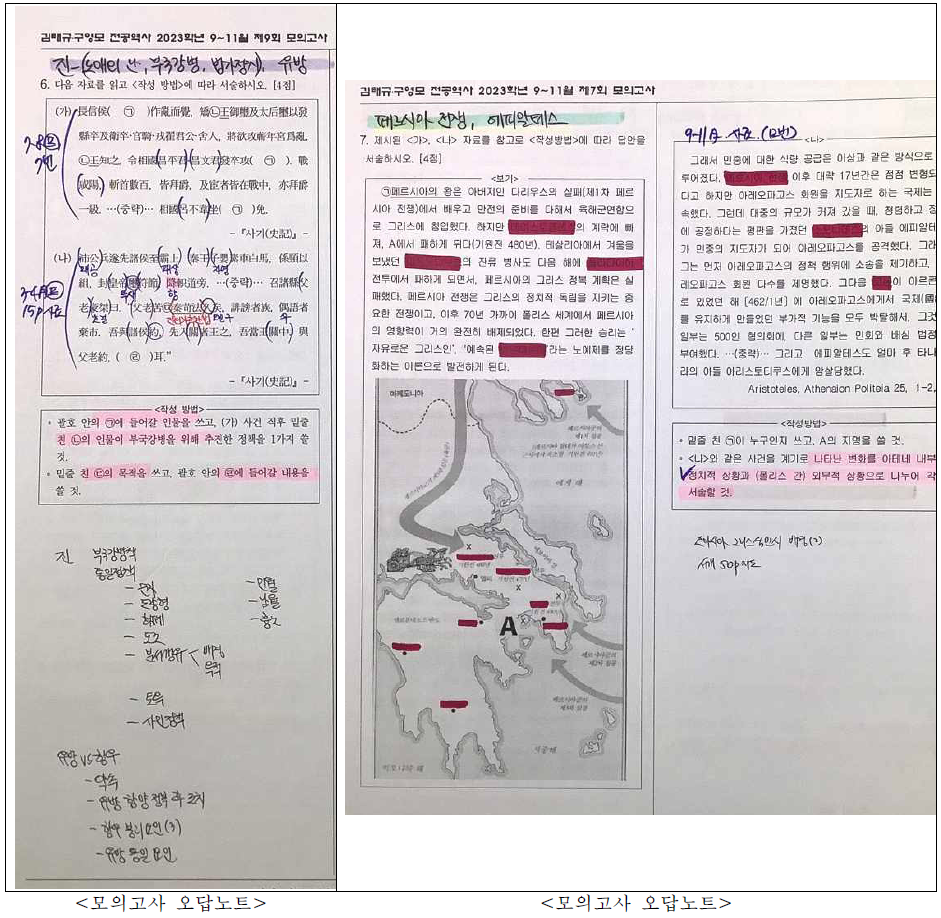 김태규·구영모 전공역사 2023학년 9~11월 제9회 모의고사
진-(노애의 난, 부국강병, 법가정치), 유방
6. 다음 자료를 읽고 <작성 방법>에 따라 서술하시오. [4점]
(가) 長信侯( ㉠ )作亂而覺, 矯㉡王御璽及太后璽以發
縣卒及衛卒·官騎·戎翟君公·舍人, 將欲攻蘄年宮爲亂,
㉡王知之, 令相國昌平君·昌文君發卒攻( ㉠ ). 戰
咸陽, 斬首數百, 皆拜爵, 及宦者皆在戰中, 亦拜爵
一級. …(중략)… 相國呂不韋坐( ㉠ )免.
-『사기(史記)』
(나) 沛公兵遂先諸侯至霸上. 秦王子嬰素車白馬, 係頸以
組, 封皇帝璽符節, 降軹道旁. …(중략)… 召諸縣父
老豪桀曰. “父老苦㉢秦苛法久矣, 誹謗者族, 偶語者
棄市. 吾與諸侯約, 先入關者王之, 吾當王關中. 與
父老約, ( ㉣ )耳.”
-『사기(史記)』
<작성 방법>
◦ 괄호 안의 ㉠에 들어갈 인물을 쓰고, (가) 사건 직후 밑줄
친 ㉡의 인물이 부국강병을 위해 추진한 정책을 1가지 쓸
것.
◦ 밑줄 친 ㉢의 목적을 쓰고, 괄호 안의 ㉣에 들어갈 내용을
쓸 것.
진 부국강병책
통일정책
- 문자
- 도량형
- 화폐
- 도로
- 분서갱유 < 배경
목적
유방 vs 항우
- 약속
- 유방 함양 정복 후 조치
- 항우 불리 요인(3)
- 유방 통일 요인
<모의고사 오답노트>
김태규·구영모 전공역사 2023학년 9~11월 제7회 모의고사
페르시아 전쟁, 에피알테스
7. 제시된 <가>, <나> 자료를 참고로 <작성방법>에 따라 답안을
서술하시오. [4점]
<보기>
㉠페르시아의 왕은 아버지인 다리우스의 실패(제1차 페르
시아 전쟁)에서 배우고 만전의 준비를 다해서 육해군연합으
로 그리스에 침입했다. 하지만 의 계략에 빠
져, A에서 패하게 되다(기원전 480년). 테살리아에서 겨울을
보냈던 의 잔류 병사도 다음 해에
전투에서 패하게 되면서, 페르시아의 그리스 정복 계획은 실
패했다. 페르시아 전쟁은 그리스의 정치적 독립을 지키는 중
요한 전쟁이고, 이후 70년 가까이 폴리스 세계에서 페르시아
의 영향력이 거의 완전히 배제되었다. 한편 그러한 승리는 ‘
자유로운 그리스인’, ‘예속된 라는 노예제를 정당
화하는 이론으로 발전하게 된다.
마케도니아
에게 해
A
9-11月 자료 (모번)
<나>
그래서 민중에 대한 식량 공급은 이상과 같은 방식으로
루어졌다. 이후 대략 17년간은 점점 변형되
다고 하지만 아레오파고스 회원을 지도자로 하는 국제는
속했다. 그런데 대중의 규모가 커져 갔을 때, 청렴하고 정
에 공정하다는 평판을 가졌던 의 아들 에피알테
가 민중의 지도자가 되어 아레오파고스를 공격했다. 그래
그는 먼저 아레오파고스의 정치 행위에 소송을 제기하고,
레오파고스 회원 다수를 제명했다. 그다음 이 아르콘
로 있었던 해 [462/1년] 에 아레오파고스에게서 국제(國
를 유지하게 만들었던 부가적 기능을 모두 박탈해서, 그것
일부는 500인 협의회에, 다른 일부는 민회와 배심 법정
부여했다. …(중략)… 그리고 에피알테스도 얼마 후 타나
라의 아들 아리스토디쿠스에게 암살당했다.
Aristoteles, Athenaion Politeia 25, 1-2,
<작성방법>
◦ 밑줄 친 ㉠이 누구인지 쓰고, A의 지명을 쓸 것.
◦ <나>와 같은 사건을 계기로 나타난 변화를 아테네 내부
정치적 상황과 (폴리스 간) 외무적 상황으로 나누어 각
서술할 것.
<모의고사 오답노트>